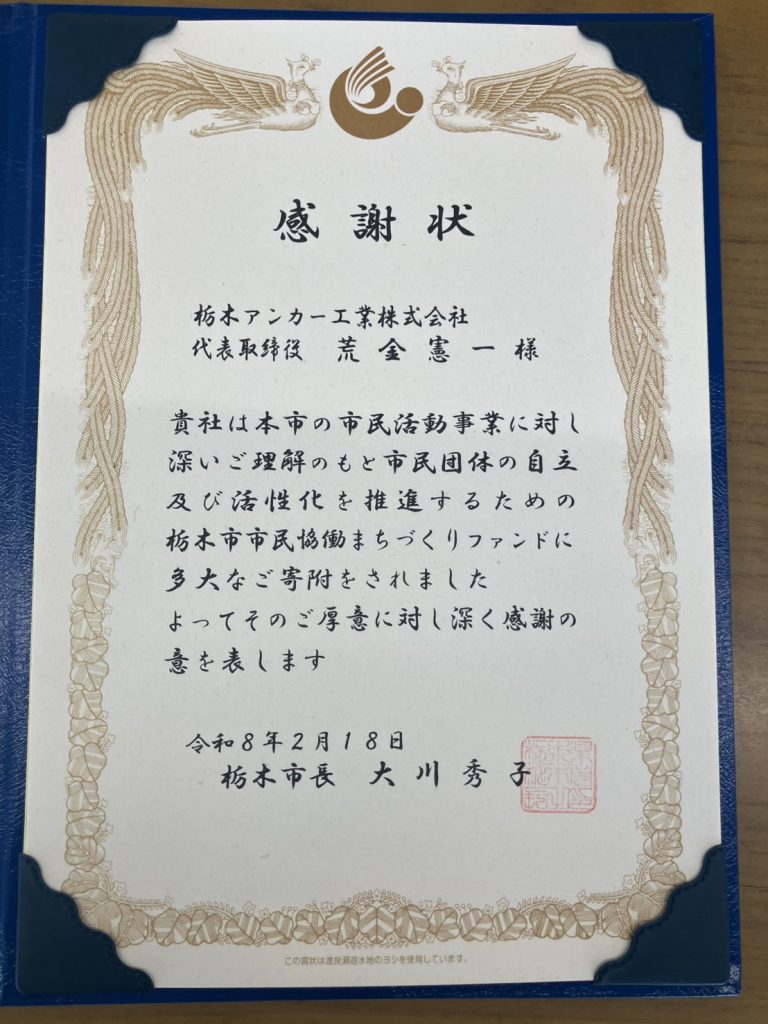 感謝状
栃木アンカー工業株式会社
代表取締役 荒金憲一様
貴社は本市の市民活動事業に対し
深いご理解のもと市民団体の自立
及び活性化を推進するための
栃木市市民協働まちづくりファンドに
多大なご寄附をされました
よってそのご厚意に対し深く感謝の
意を表します
令和8年2月18日
栃木市長 大川秀子
この賞状は渡良瀬遊水地のヨシを使用しています。